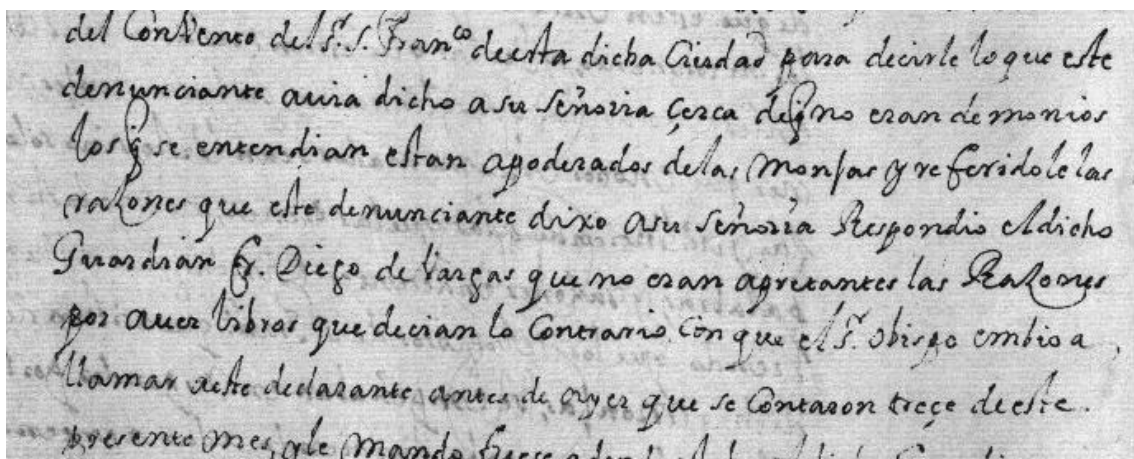 del Conbento del S. S. Fran^co de esta dicha Ciudad para decirle lo que este
denunciante auia dicho a su señoria çerca de q no eran demonios
los q se entendian estan apoderados de las Monjas y referidole las
raçones que este denunciante dixo a su señoria Respondio el dicho
Guardian fr. Diego de Vargas que no eran apretantes las Raçones
por auer libros que decian lo Contrario, Con que el S. obispo embio a
llamar a este declarante antes de ayer que se Contaron treçe de este
presente mes, y le Mando fuese a